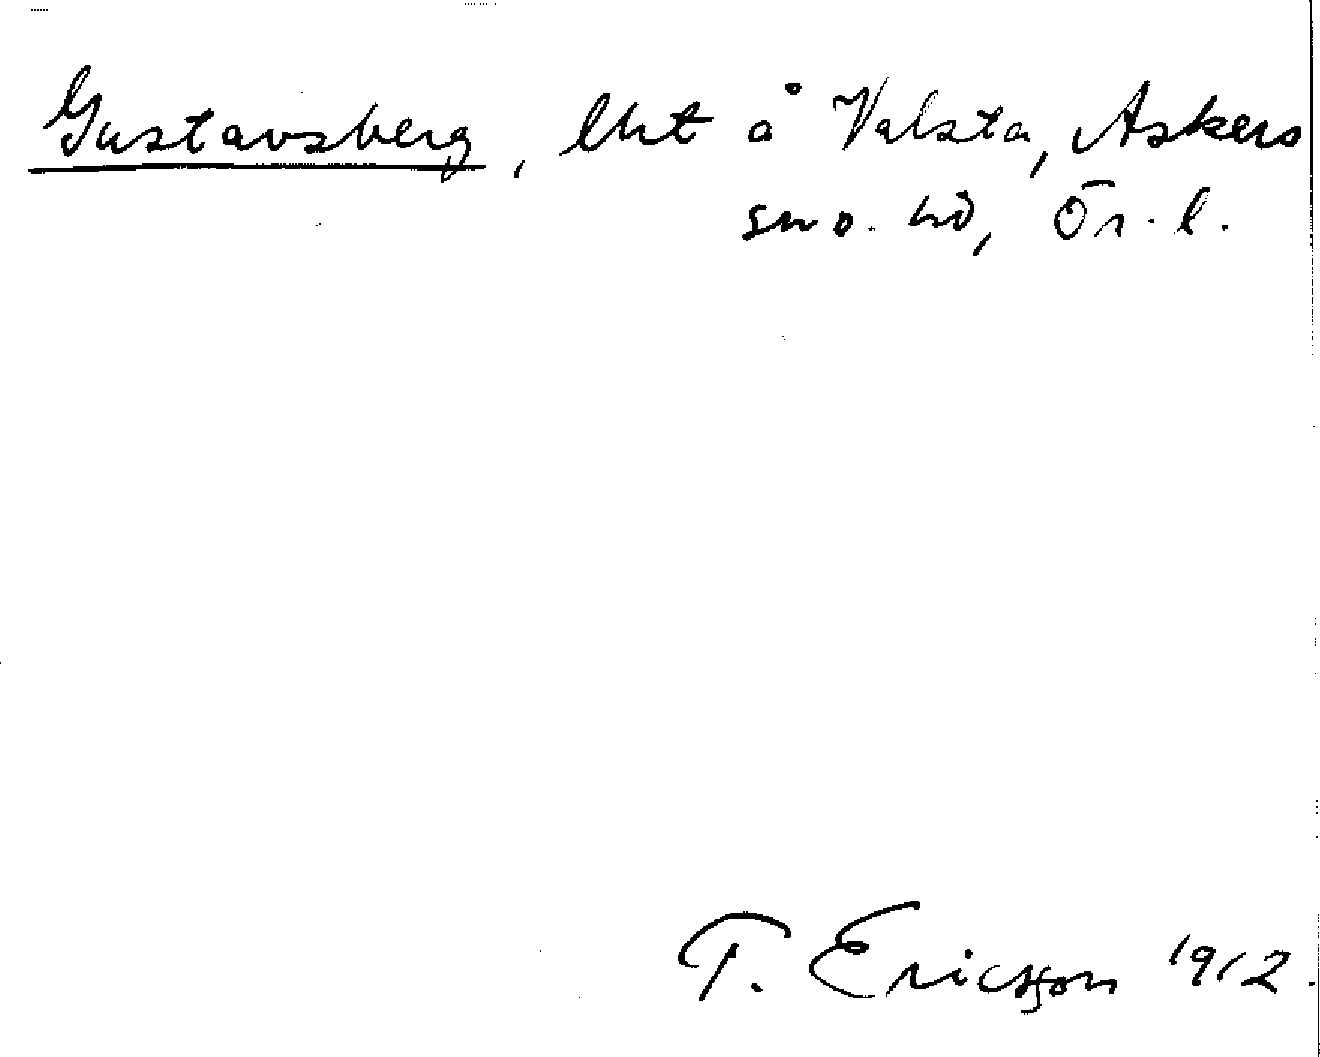 Gustavsberg, lht å Valsta, Askers
sn o. hd, Ör. l.
T. Ericsson 1912.